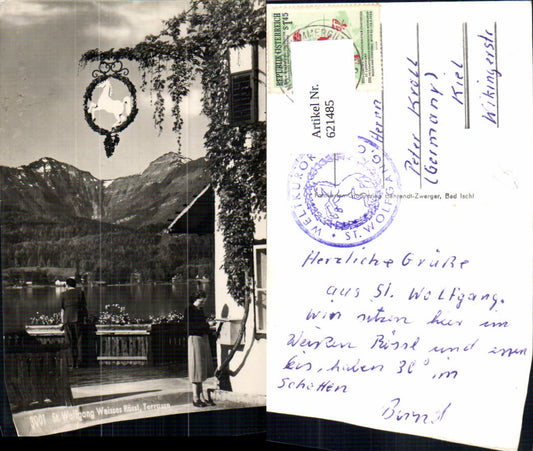 5001 St. Wolfgang Weisses Rössl, Terrasse
REPUBLIK ÖSTERREICH
S 1.45
Artikel Nr.
621485
WELTKURORT
ST. WOLFGANG
Herrn
Peter Kroll
(Germany)
Kiel
Wikingerstr
Behrendt-Zwerger, Bad Ischl
Herzliche Grüße
aus St. Wolfgang.
Wir sitzen hier im
Weißen Rössl und essen
Eis, haben 30° im
Schatten
Bernd